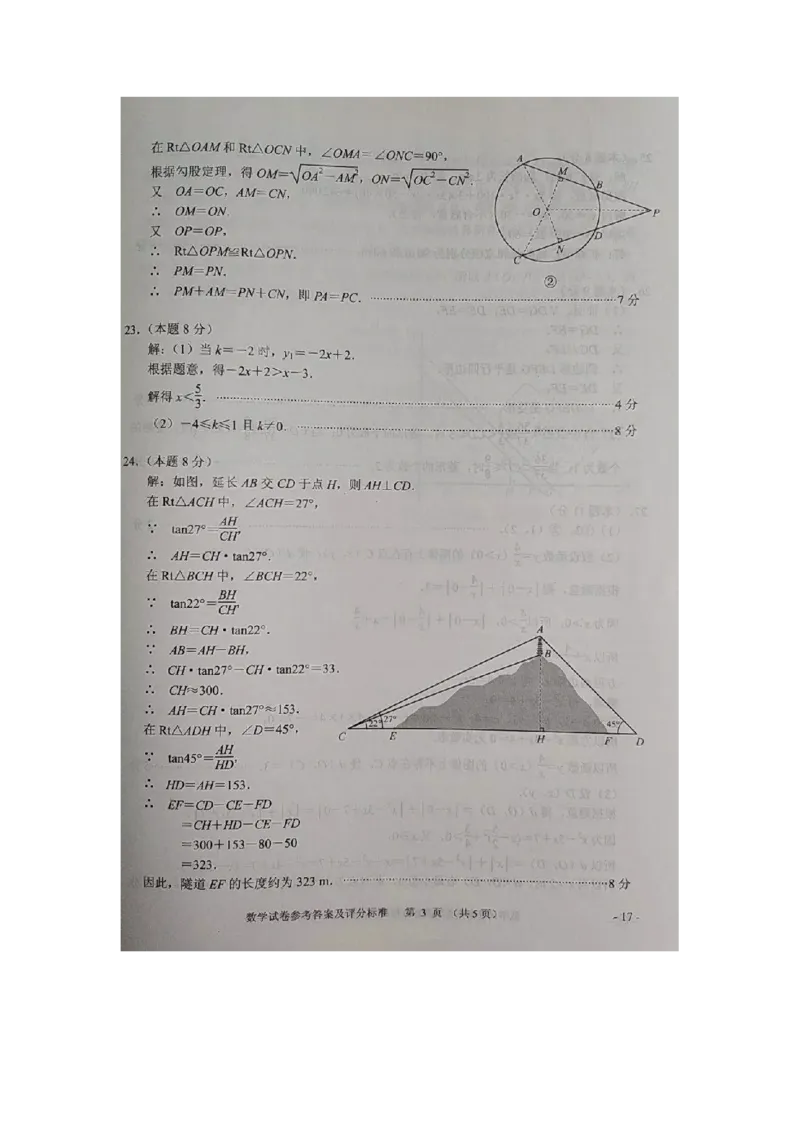 在Rt△OAM和Rt△OCN中，∠OMA=∠ONC=90°，
根据勾股定理，得OM=√(OA²-AM²)，ON=√(OC²-CN²).
又 OA=OC，AM=CN，
∴ OM=ON.
又 OP=OP，
∴ Rt△OPM≌Rt△OPN.
∴ PM=PN.
∴ PM+AM=PN+CN，即PA=PC. ……7分
A
M
B
O
P
N
D
C
②
23.（本题8分）
解：（1）当k=-2时，y₁=-2x+2.
根据题意，得-2x+2>x-3.
解得x<5/3. ……4分
（2）-4≤k≤1且k≠0. ……8分
24.（本题8分）
解：如图，延长AB交CD于点H，则AH⊥CD.
在Rt△ACH中，∠ACH=27°，
∵ tan27°=AH/CH，
∴ AH=CH·tan27°.
在Rt△BCH中，∠BCH=22°，
∵ tan22°=BH/CH，
∴ BH=CH·tan22°.
∵ AB=AH-BH，
∴ CH·tan27°-CH·tan22°=33.
∴ CH≈300.
∴ AH=CH·tan27°≈153.
在Rt△ADH中，∠D=45°，
∵ tan45°=AH/HD，
∴ HD=AH=153.
∴ EF=CD-CE-FD
=CH+HD-CE-FD
=300+153-80-50
=323.
因此，隧道EF的长度约为323 m. ……8分
A
B
22°
27°
45°
C
E
H
F
D
数学试卷参考答案及评分标准 第 3 页 （共5页）
- 17 -